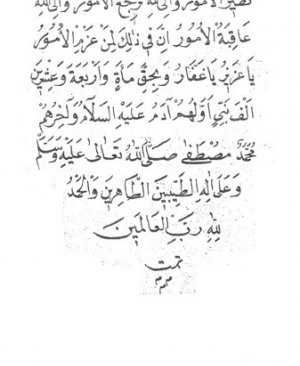 تصير الامور والى الله ترجع الامور والى الله
عَاقِبَةُ الْاُمُورُ اِنَّ فِي ذٰلِكَ لَمِنْ عَزْمِ الْاُمُورُ
يَاعَزِيزُ يَاغَفَّارُ وَبِحَقِّ مِاَةٍ وَاَرْبَعَةٍ وَعِشْرِينَ
اَلْفَ نَبِيٍّ اَوَّلُهُمْ اٰدَمُ عَلَيْهِ السَّلَامُ وَاٰخِرُهُمْ
مُحَمَّدٌ مُصْطَفٰى صَلَّى اللّٰهُ تَعَالٰى عَلَيْهِ وَسَلَّمَ
وَعَلٰى اٰلِهِ الطَّيِّبِينَ الطَّاهِرِينَ وَالْحَمْدُ
لِلّٰهِ رَبِّ الْعَالَمِينَ
تمت
م م م